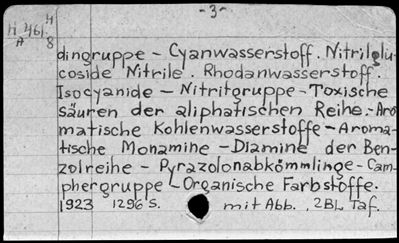 -3-
H 461. 4
A 8
dingruppe - Cyanwasserstoff. Nitrilglu-
coside Nitrile. Rhodanwasserstoff.
Isocyanide - Nitritgruppe - Toxische
säuren der aliphatischen Reihe.- Aro
matische Kohlenwasserstoffe - Aroma-
tische Monamine - Diamine der Ben-
zolreihe - Pyrazolonabkömmlinge - Cam-
phergruppe - Organische Farbstoffe.
1923 1296 S. mit Abb., 2 Bl. Taf.